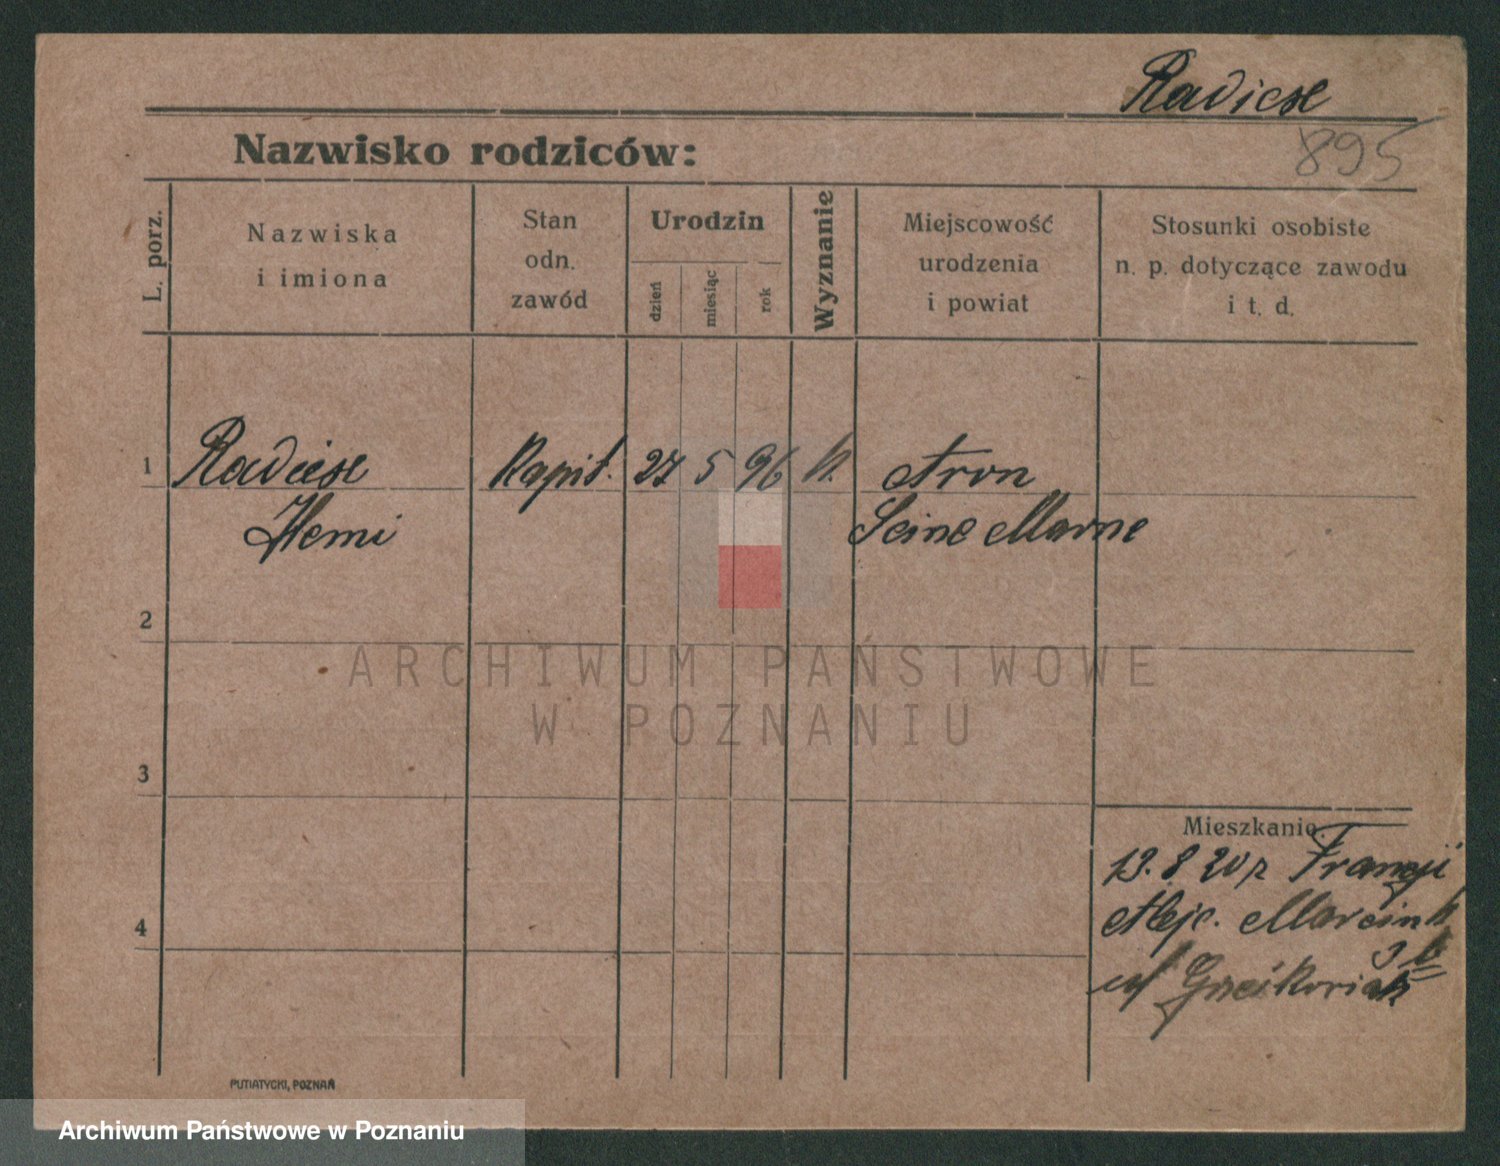 Radiese
895
Nazwisko rodziców:
L. porz.
Nazwiska
i imiona
Stan
odn.
zawód
Urodzin
dzień
miesiąc
rok
Wyznanie
Miejscowość
urodzenia
i powiat
Stosunki osobiste
n. p. dotyczące zawodu
i t. d.
1 Radiese Kapit. 27 5 96 k. Avon
Henri Seine Marne
2
ARCHIWUM PAŃSTWOWE
W POZNANIU
3
Mieszkanie.
13. 8 20 z Francji
Aleje. Marcink
4
u
PUTIATYCKI, POZNAŃ
Archiwum Państwowe w Poznaniu